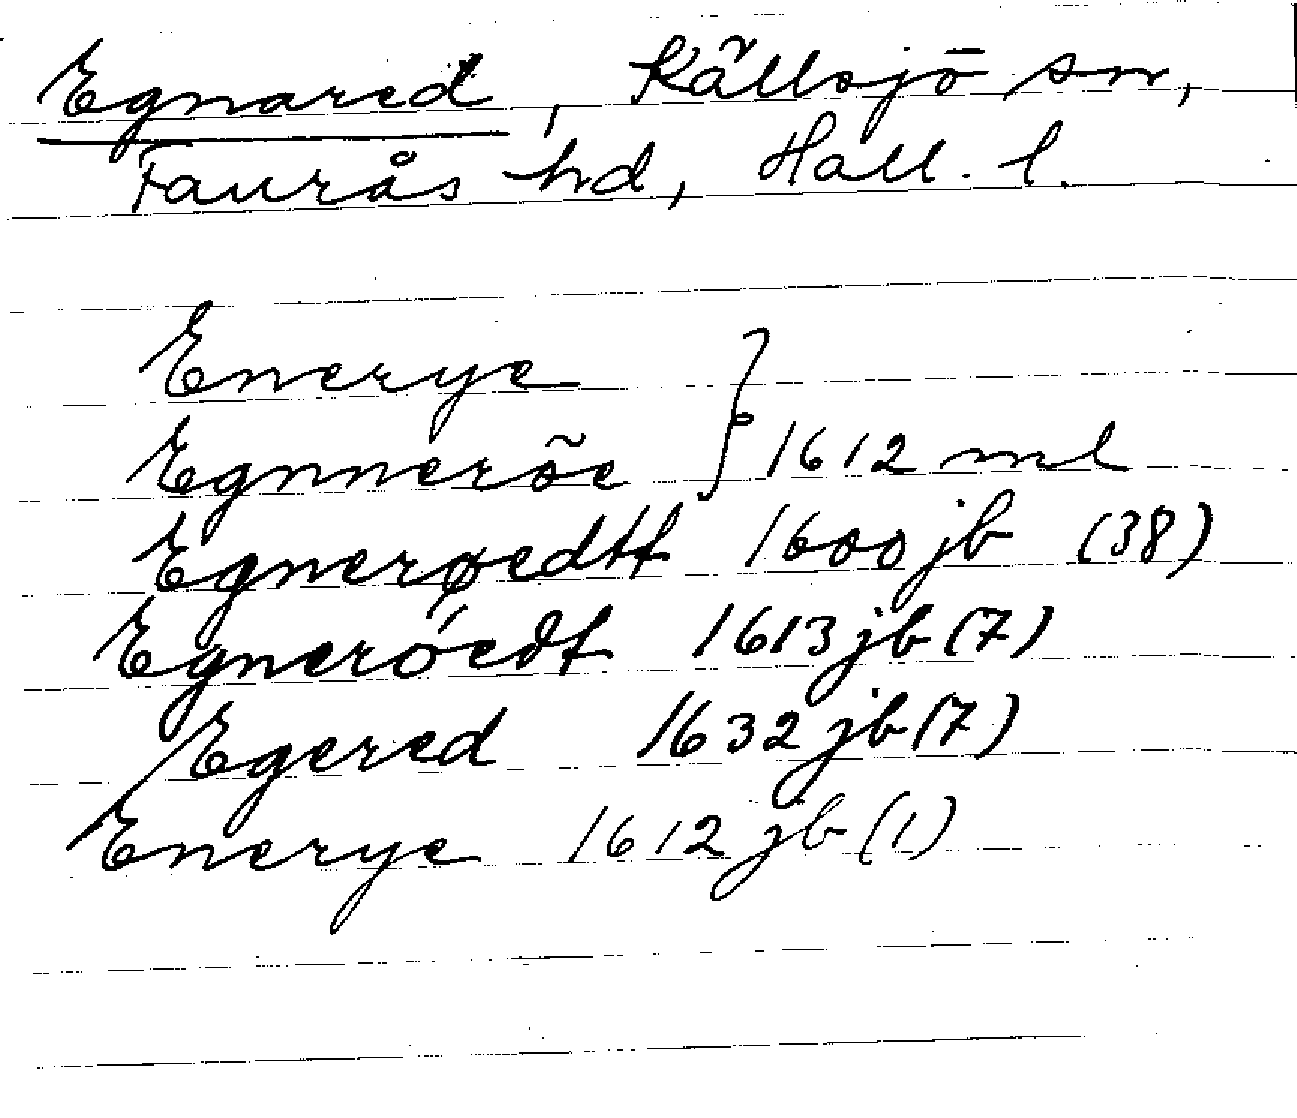 Egnared, Källsjö sn,
Faurås hd, Hall. l.
Enerye
Egnnerõe } 1612 ml
Egnerøedtt 1600 jb (38)
Egneróedt 1613 jb (7)
Egered 1632 jb (7)
Enerye 1612 jb (1)